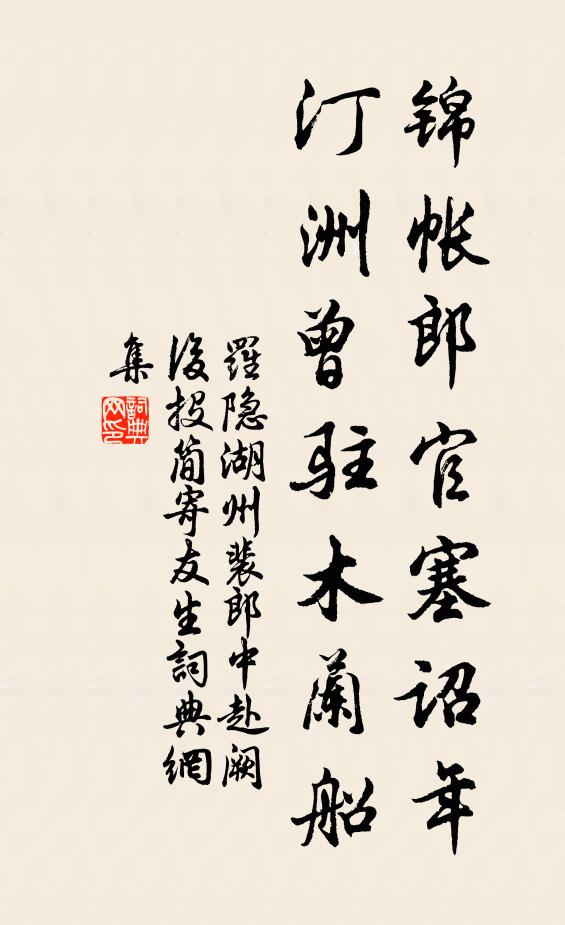 锦帐郎官塞诏年
汀洲曾驻木蘭船
羅隐湖州裴郎中赴阙
後投简寄友生詞典網
集
詞典
网印